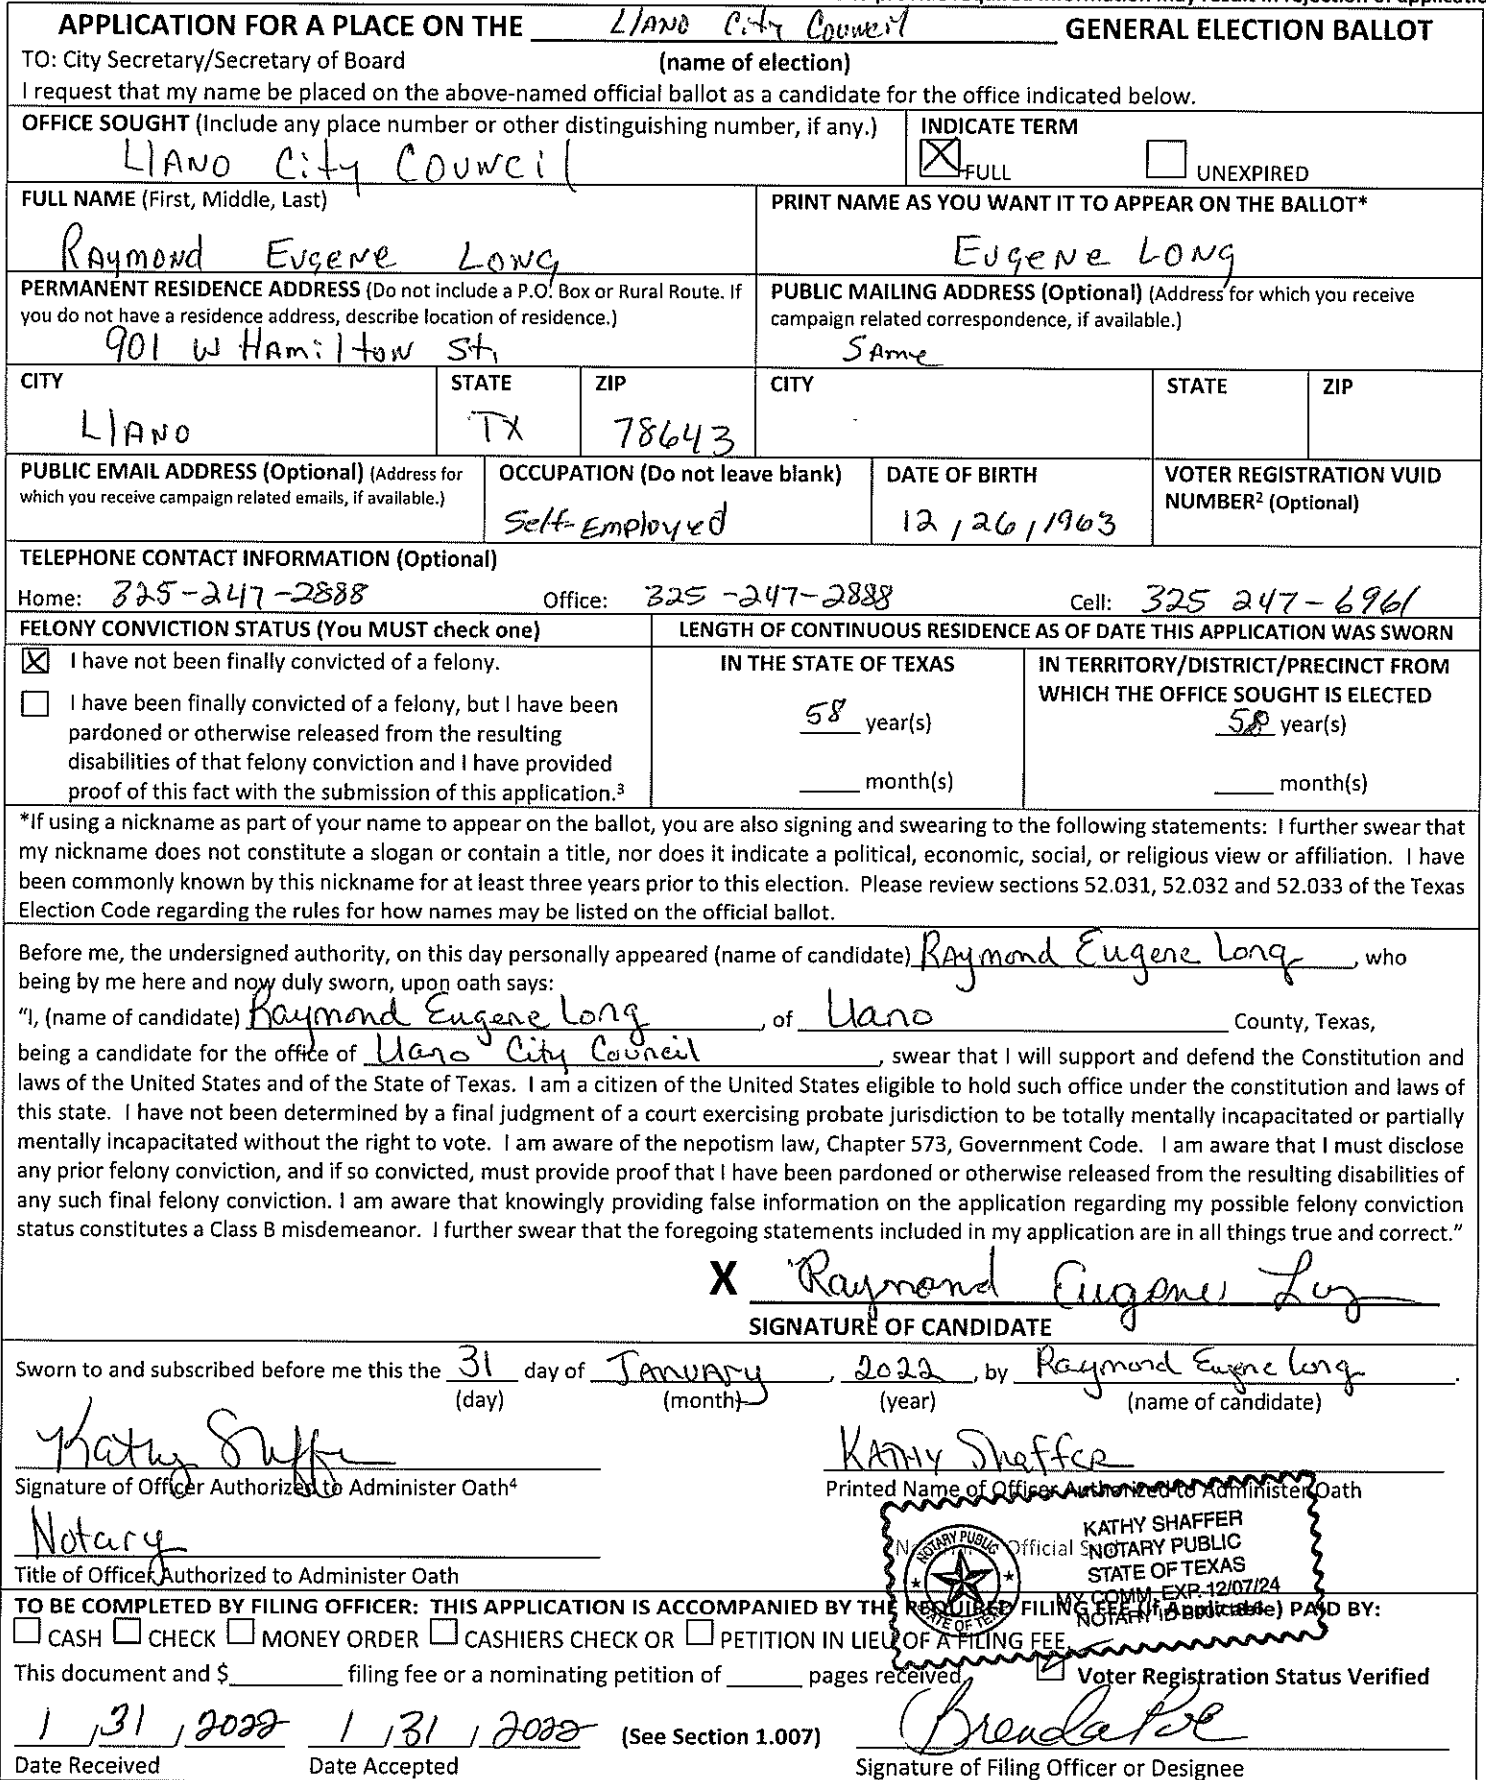 APPLICATION FOR A PLACE ON THE LIANO City Council GENERAL ELECTION BALLOT
TO: City Secretary/Secretary of Board (name of election)
I request that my name be placed on the above-named official ballot as a candidate for the office indicated below.
OFFICE SOUGHT (Include any place number or other distinguishing number, if any.) INDICATE TERM
LlANO City COUNCil
☒ FULL ☐ UNEXPIRED
FULL NAME (First, Middle, Last) PRINT NAME AS YOU WANT IT TO APPEAR ON THE BALLOT*
RAymond EugeNe LONG EugeNe LONG
PERMANENT RESIDENCE ADDRESS (Do not include a P.O. Box or Rural Route. If you do not have a residence address, describe location of residence.)
901 W HAmilton St.
PUBLIC MAILING ADDRESS (Optional) (Address for which you receive campaign related correspondence, if available.)
SAme
CITY STATE ZIP CITY STATE ZIP
LlANO TX 78643
PUBLIC EMAIL ADDRESS (Optional) (Address for which you receive campaign related emails, if available.)
OCCUPATION (Do not leave blank)
Self-Employed
DATE OF BIRTH
12/26/1963
VOTER REGISTRATION VUID NUMBER² (Optional)
TELEPHONE CONTACT INFORMATION (Optional)
Home: 325-247-2888 Office: 325-247-2888 Cell: 325 247-6961
FELONY CONVICTION STATUS (You MUST check one) LENGTH OF CONTINUOUS RESIDENCE AS OF DATE THIS APPLICATION WAS SWORN
☒ I have not been finally convicted of a felony.
☐ I have been finally convicted of a felony, but I have been
pardoned or otherwise released from the resulting
disabilities of that felony conviction and I have provided
proof of this fact with the submission of this application.³
IN THE STATE OF TEXAS
58 year(s)
month(s)
IN TERRITORY/DISTRICT/PRECINCT FROM
WHICH THE OFFICE SOUGHT IS ELECTED
58 year(s)
month(s)
*If using a nickname as part of your name to appear on the ballot, you are also signing and swearing to the following statements: I further swear that
my nickname does not constitute a slogan or contain a title, nor does it indicate a political, economic, social, or religious view or affiliation. I have
been commonly known by this nickname for at least three years prior to this election. Please review sections 52.031, 52.032 and 52.033 of the Texas
Election Code regarding the rules for how names may be listed on the official ballot.
Before me, the undersigned authority, on this day personally appeared (name of candidate) RAymond Eugene Long, who
being by me here and now duly sworn, upon oath says:
"I, (name of candidate) Raymond Eugene Long, of Llano County, Texas,
being a candidate for the office of Llano City Council, swear that I will support and defend the Constitution and
laws of the United States and of the State of Texas. I am a citizen of the United States eligible to hold such office under the constitution and laws of
this state. I have not been determined by a final judgment of a court exercising probate jurisdiction to be totally mentally incapacitated or partially
mentally incapacitated without the right to vote. I am aware of the nepotism law, Chapter 573, Government Code. I am aware that I must disclose
any prior felony conviction, and if so convicted, must provide proof that I have been pardoned or otherwise released from the resulting disabilities of
any such final felony conviction. I am aware that knowingly providing false information on the application regarding my possible felony conviction
status constitutes a Class B misdemeanor. I further swear that the foregoing statements included in my application are in all things true and correct."
X Raymond Eugene Long
SIGNATURE OF CANDIDATE
Sworn to and subscribed before me this the 31 day of JANUARy, 2022, by Raymond Eugene Long.
(day) (month) (year) (name of candidate)
Kathy Shaffer KATHY Shaffer
Signature of Officer Authorized to Administer Oath⁴ Printed Name of Officer Authorized to Administer Oath
Notary
Title of Officer Authorized to Administer Oath
Official
NOTARY PUBLIC
STATE OF TEXAS
KATHY SHAFFER
NOTARY PUBLIC
STATE OF TEXAS
MY COMM. EXP. 12/07/24
NOTARY ID
TO BE COMPLETED BY FILING OFFICER: THIS APPLICATION IS ACCOMPANIED BY THE REQUIRED FILING FEE (If Applicable) PAID BY:
☐ CASH ☐ CHECK ☐ MONEY ORDER ☐ CASHIERS CHECK OR ☐ PETITION IN LIEU OF A FILING FEE.
This document and $ filing fee or a nominating petition of pages received. ☑ Voter Registration Status Verified
1/31/2022 1/31/2022 (See Section 1.007) Brenda Poe
Date Received Date Accepted Signature of Filing Officer or Designee